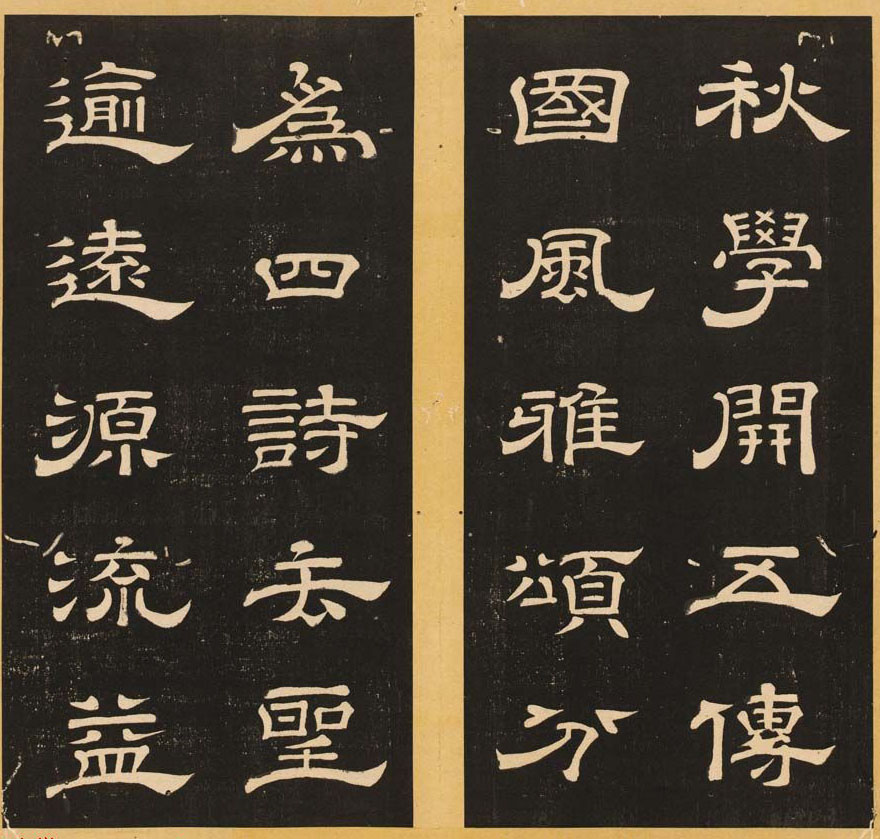 秋學開五傳
國風雅頌分
爲四詩去聖
逾遠源流益